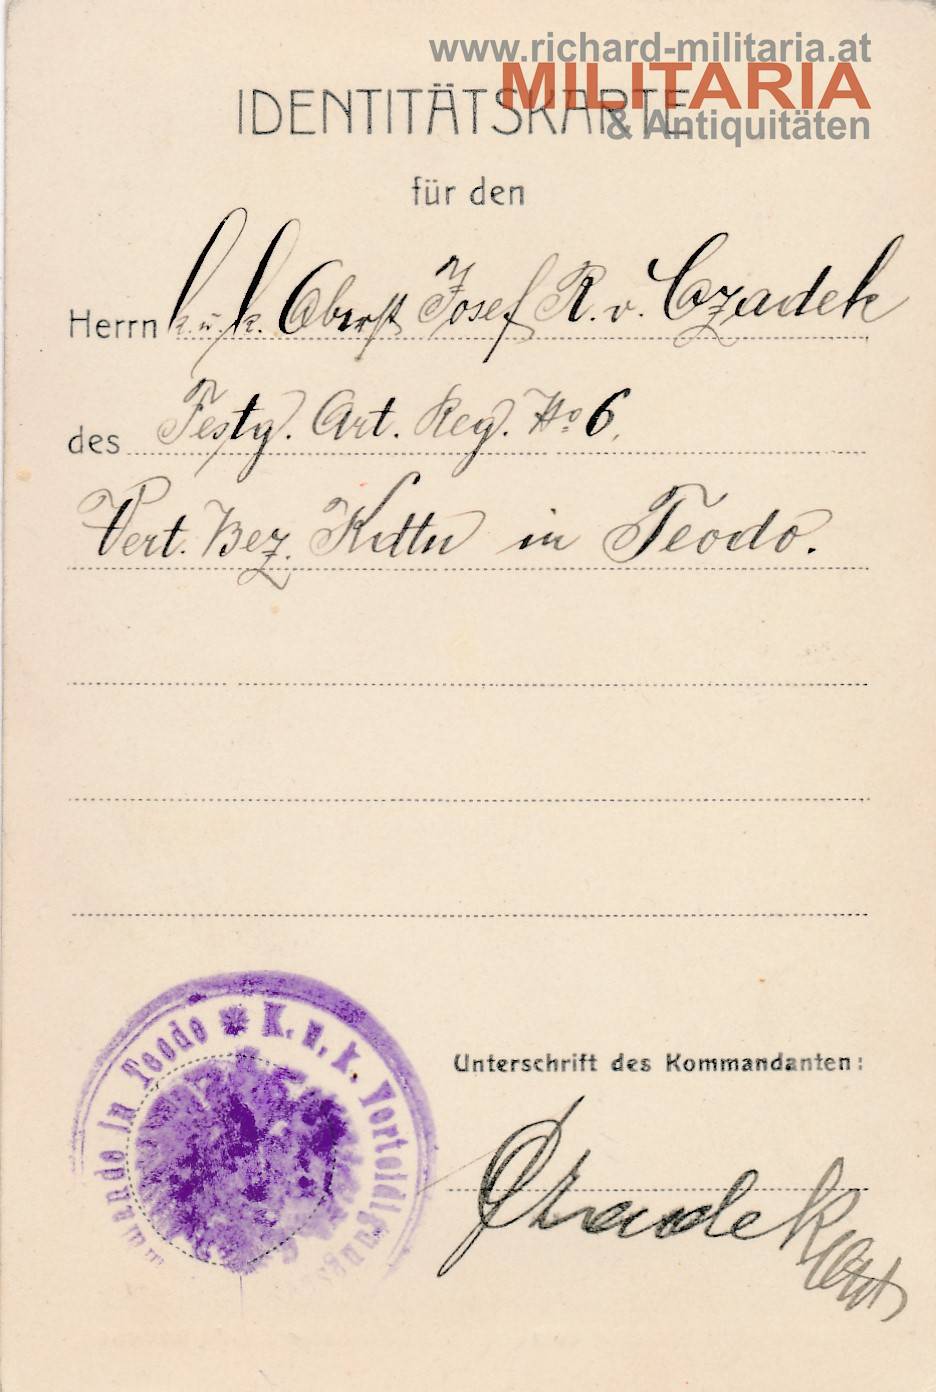 www.richard-militaria.at
MILITARIA
& Antiquitäten
IDENTITÄTSKARTE
für den
Herrn k. u. k. Oberst Josef R. v. Czadek
des Festg. Art. Reg. No 6.
Vert. Bez. Kdtn in Teodo.
Unterschrift des Kommandanten:
Czadek Obst
K. u. k. Verteidigungs mando in Teodo